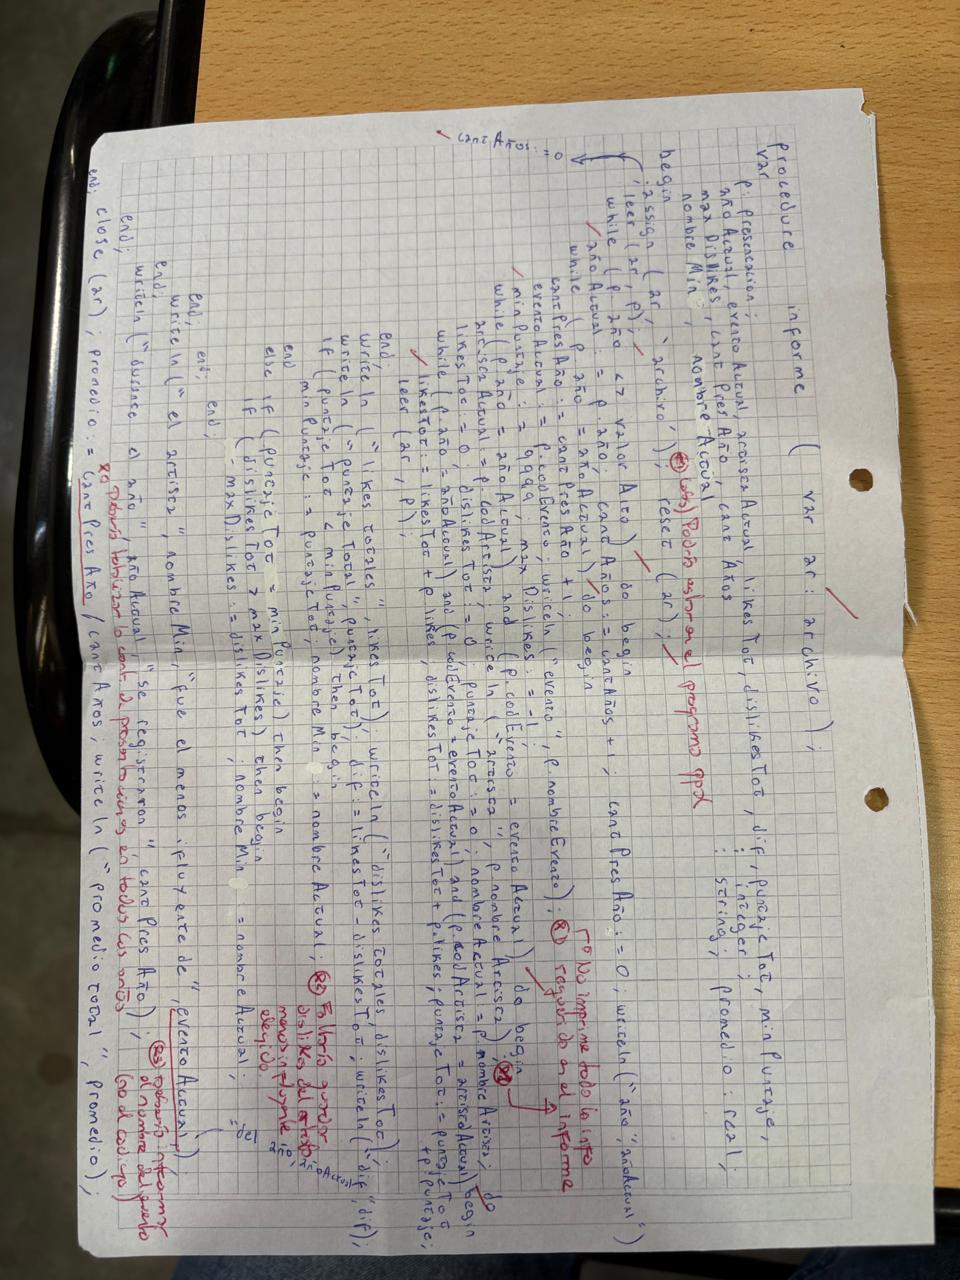 procedure informe ( var ar: archivo );
var
p: presentacion;
año Actual, evento Actual, artista Actual, likes Tot, dislikes Tot, dif, puntaje Tot, min Puntaje,
max Dislikes, cant Pres Año, cant Años : integer;
nombre Min, nombre Actual : string; promedio : real;
begin
assign (ar, "archivo"); reset (ar);
obs) Podría estar en el programa ppal
leer (ar, p);
cant Años := 0
while (p.año <> valor Año) do begin
año Actual := p.año; cant Años := cant Años + 1; cant Pres Año := 0; writeln ("año", año Actual")
while (p.año = año Actual) do begin
cant Pres Año := cant Pres Año + 1;
evento Actual := p.cod Evento; writeln ("evento", p.nombre Evento);
No imprime todo la info requerida en el informe
min Puntaje := 9999; max Dislikes := -1;
while (p.año = año Actual) and (p.cod Evento = evento Actual) do begin
artista Actual := p.cod Artista; write ln ("artista", p.nombre Artista);
likes Tot := 0; dislikes Tot := 0; puntaje Tot := 0; nombre Actual = p.nombre Artista;
while (p.año = año Actual) and (p.cod Evento = evento Actual) and (p.cod Artista = artista Actual) do begin
likes Tot := likes Tot + p.likes; dislikes Tot = dislikes Tot + p.likes; puntaje Tot := puntaje Tot + p.puntaje;
leer (ar, p);
end;
write ln ("likes totales", likes Tot); write ln ("dislikes totales, dislikes Tot);
write ln ("puntaje total", puntaje Tot); dif := likes Tot - dislikes Tot; write ln ("dif", dif);
if (puntaje Tot < min Puntaje) then begin
min Puntaje := puntaje Tot; nombre Min := nombre Actual;
Faltaría guardar dislikes del artista menos influyente elegido.
end
else if (puntaje Tot = min Puntaje) then begin
if (dislikes Tot > max Dislikes) then begin
max Dislikes := dislikes Tot; nombre Min := nombre Actual;
end;
end;
end;
write ln ("el artista", nombre Min, "fue el menos ifluyente de", evento Actual);
Debería informar el nombre del evento (no el código)
end;
writeln ("durante el año", año Actual, "se registraron" cant Pres Año);
end;
Debería totalizar la cant. de presentaciones en todos los años
close (ar); promedio := cant Pres Año / cant Años; write ln ("promedio total", promedio);
end;